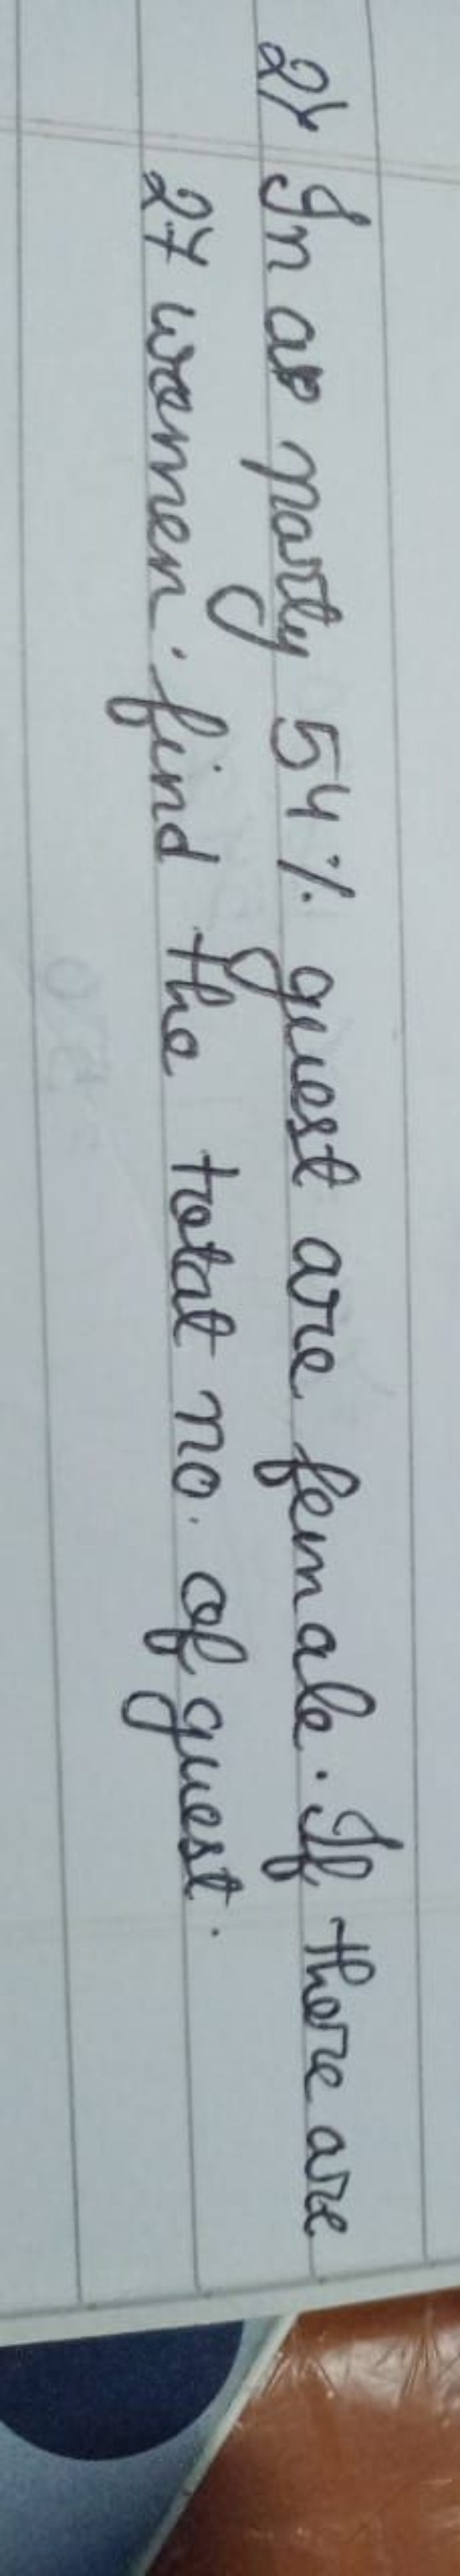 2) In a party 54% guest are female. If there are
27 women. find the total no. of guest.